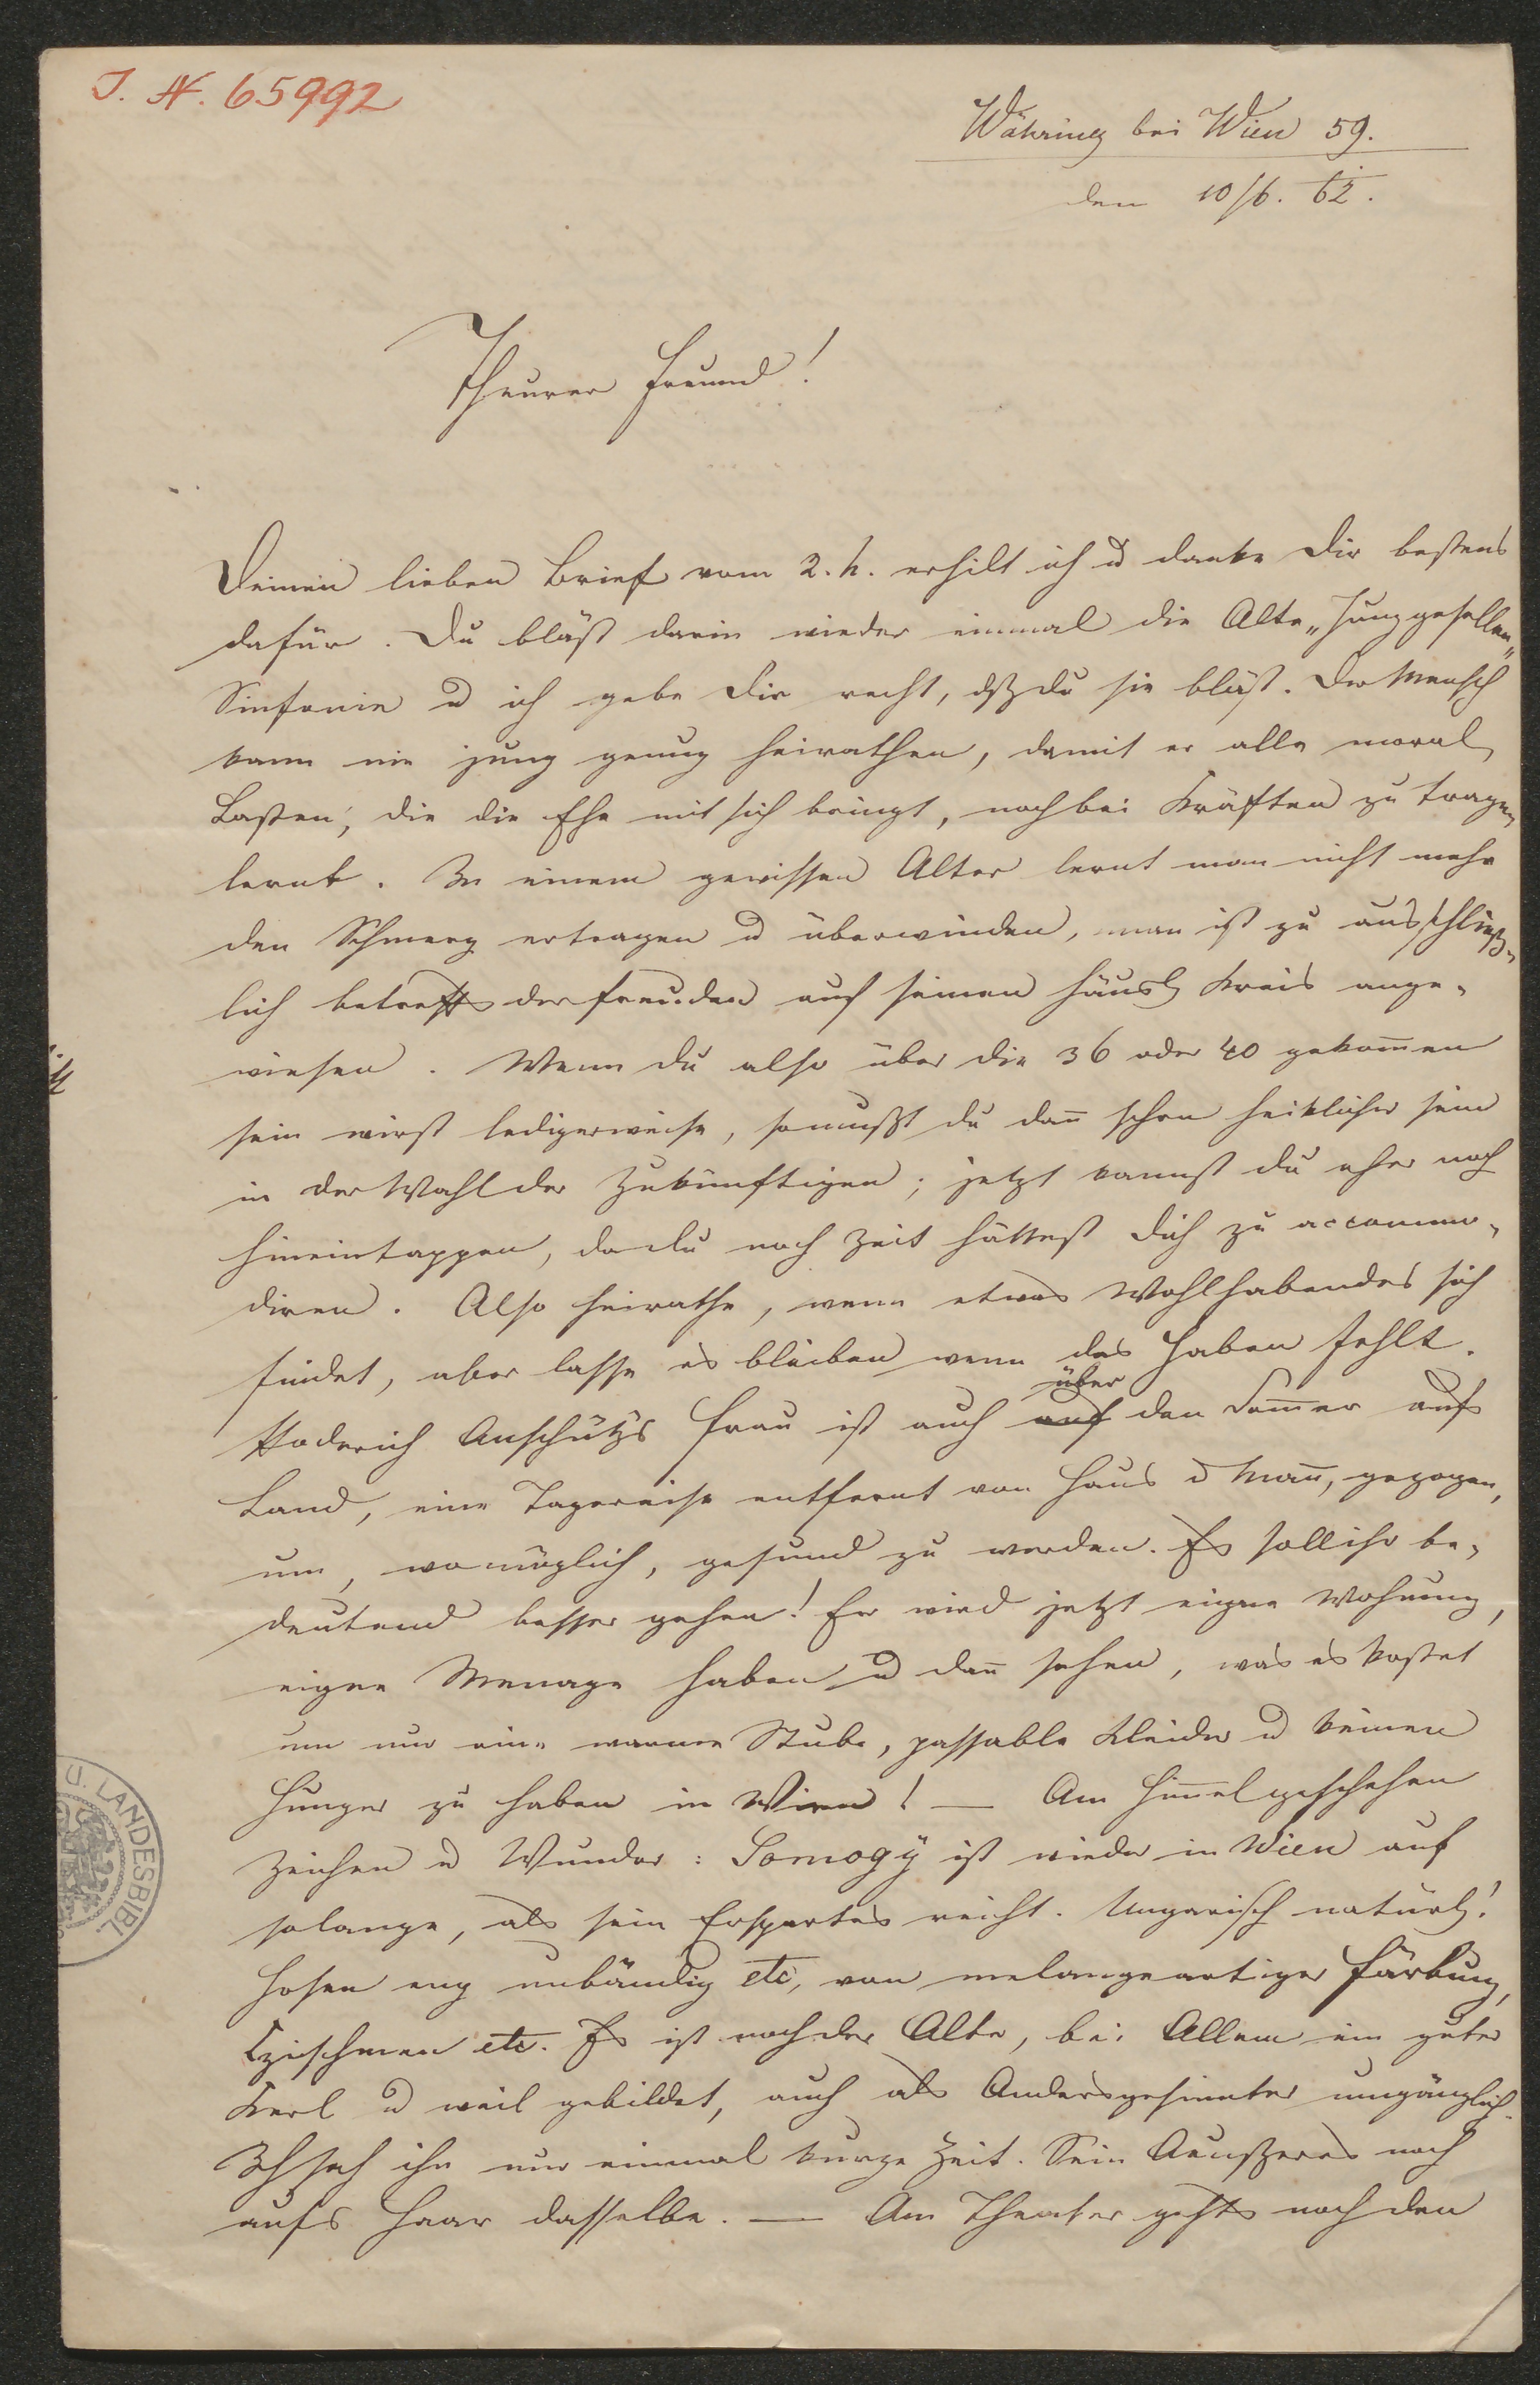 J. N. 65992
Währing bei Wien 59.
den 10/6. 62.
Theurer Freund!
Deinen lieben Brief vom 2. h. erhilt ich u danke Dir bestens
dafür. Du bläst darin wieder einmal die Alte „Junggesellen„
Sinfonie u ich gebe Dir recht, dß du sie bläst. Der Mensch
kann nie jung genug heirathen, damit er alle moral.
Lasten, die die Ehe mit sich bringt, noch bei Kräften zu tragen
lernt. In einem gewissen Alter lernt man nicht mehr
den Schmerz ertragen u überwinden, man ist zu ausschließ-
lich betreffs der Freuden auf seinen häusl. Kreis ange-
wiesen. Wenn du also über die 36 oder 40 gekom̄en
sein wirst ledigerweise, so mußt du dan̄ schon heiklicher sein
in der Wahl der Zukünftigen; jetzt kannst du eher noch
hineintappen, da du noch Zeit hättest dich zu accommo-
diren. Also heirathe, wenn etwas Wohlhabendes sich
findet, aber lasse es bleiben wenn das Haben fehlt.
Roderich Anschütz's Frau ist auch auf über den Som̄er aufs
Land, eine Tagereise entfernt von Haus u Man̄, gezogen,
um, womöglich, gesund zu werden. Es soll ihr be-
deutend besser gehen! Er wird jetzt eigne Wohnung,
eigne Menage haben u dan̄ sehen, was es kostet
um nur eine warme Stube, passable Kleider u keinen
Hunger zu haben in Wien! — Am Him̄el geschehen
Zeichen u Wunder: Somogÿ ist wieder in Wien auf
solange, als sein Erspartes reicht. Ungarisch natürl.!
Hosen eng unbändig etc, von melangeartiger Färbung,
Tzischmen etc. Es ist noch der Alte, bei Allem ein guter
Kerl u weil gebildet, auch als Andersgesinnter umgänglich.
Ich sah ihn nur einmal kurze Zeit. Sein Aeußeres noch
aufs Haar dasselbe. — Am Theater gehts noch den
U. LANDESBIBL.